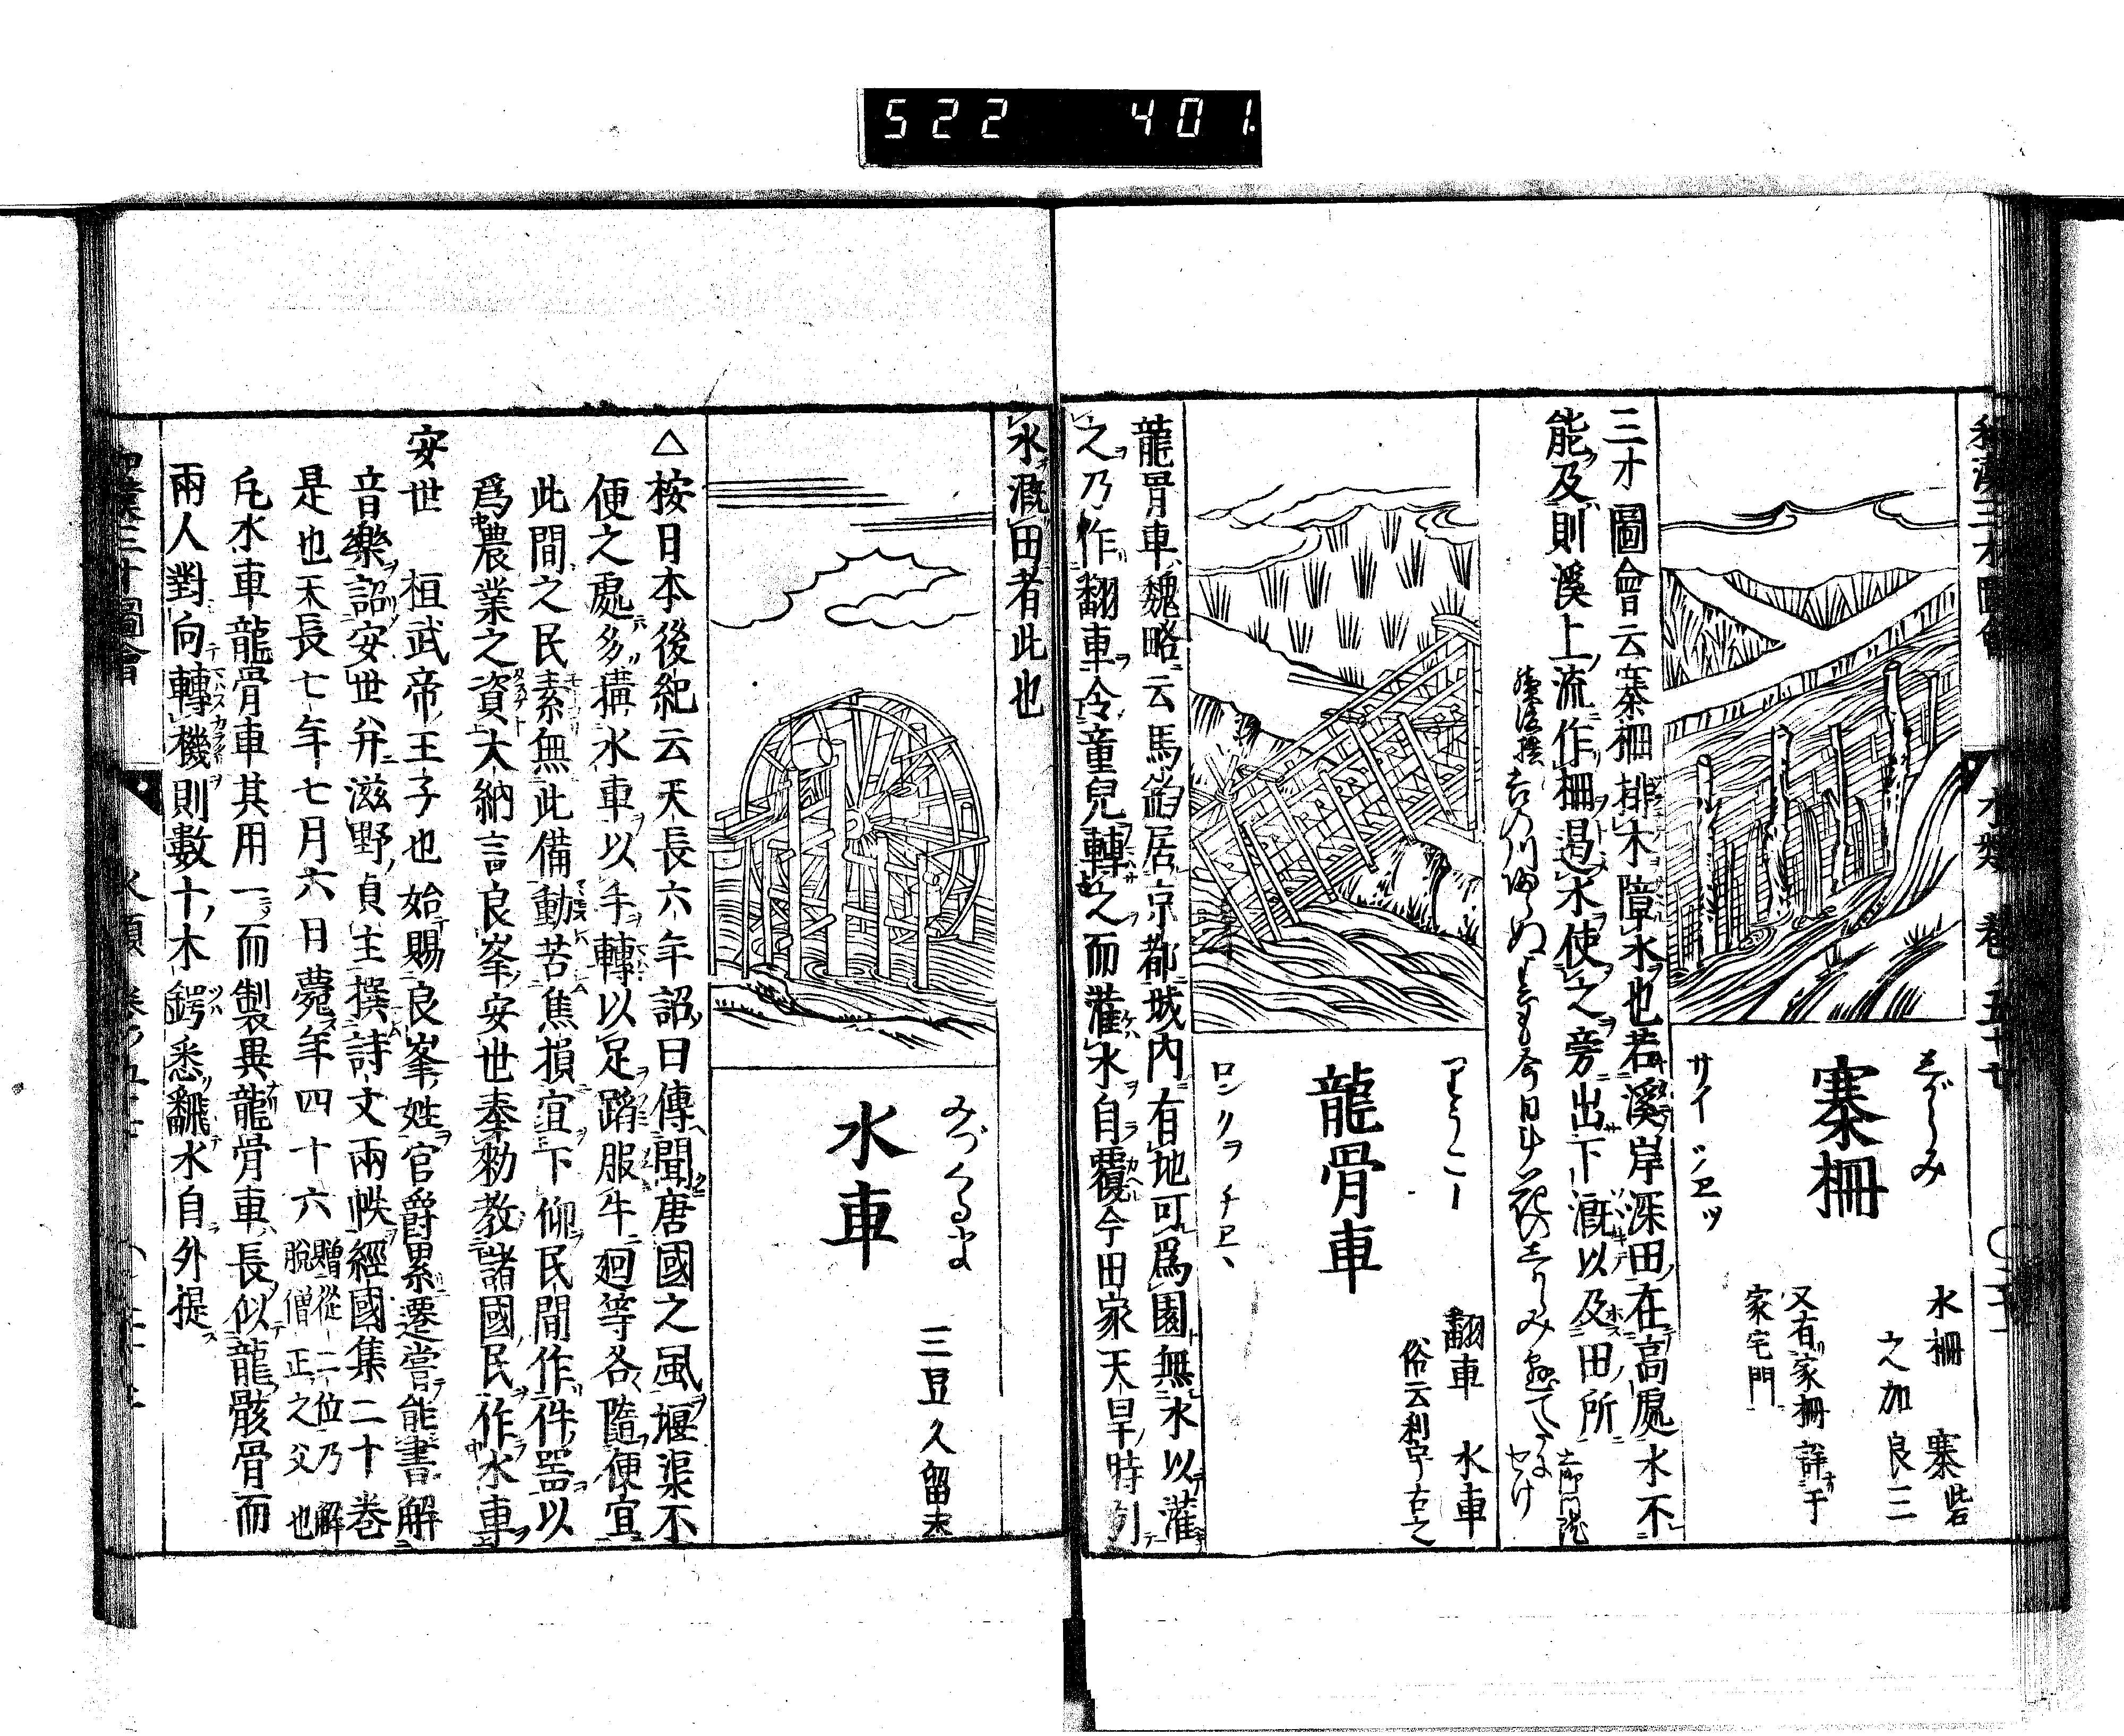 522 401
和漢三才圖會 水類 卷ノ五十七
しがらみ
寨柵
サイ ツヱツ
水柵 寨砦
之加良三
又有家柵詳于
家宅門
三才圖會云寨柵排木障水也若溪岸深田在高處水不
能及則溪上流作柵遏水使之旁出下漑以及田所
りうこし
龍骨車
ロン クヲ チヱヽ
翻車 水車
俗云利宇古之
龍骨車魏略云馬鈞居京都城内有地可爲園無水以灌
之乃作翻車令童兒轉之而灌水自覆今田家天旱時引
水漑田者此也
みづくるま
水車
三豆久留末
△按日本後紀云天長六年詔曰傳聞唐國之風堰渠不
便之處多搆水車以手轉以足蹈服牛廻等各隨便宜
此間之民素無此備動苦焦損宜下仰民間作件器以
爲農業之資大納言良峯安世奉勅教諸國民作水車
安世 桓武帝王子也始賜良峯姓官爵累遷嘗能書解
音樂詔安世并滋野貞主撰詩文兩帙經國集二十卷
是也天長七年七月六日薨年四十六贈從二位乃解
脫僧正之父也
凡水車龍骨車其用一而製異龍骨車長似龍骸骨而
兩人對向轉機則數十木鍔悉飜水自外提
和漢三才圖會 水類